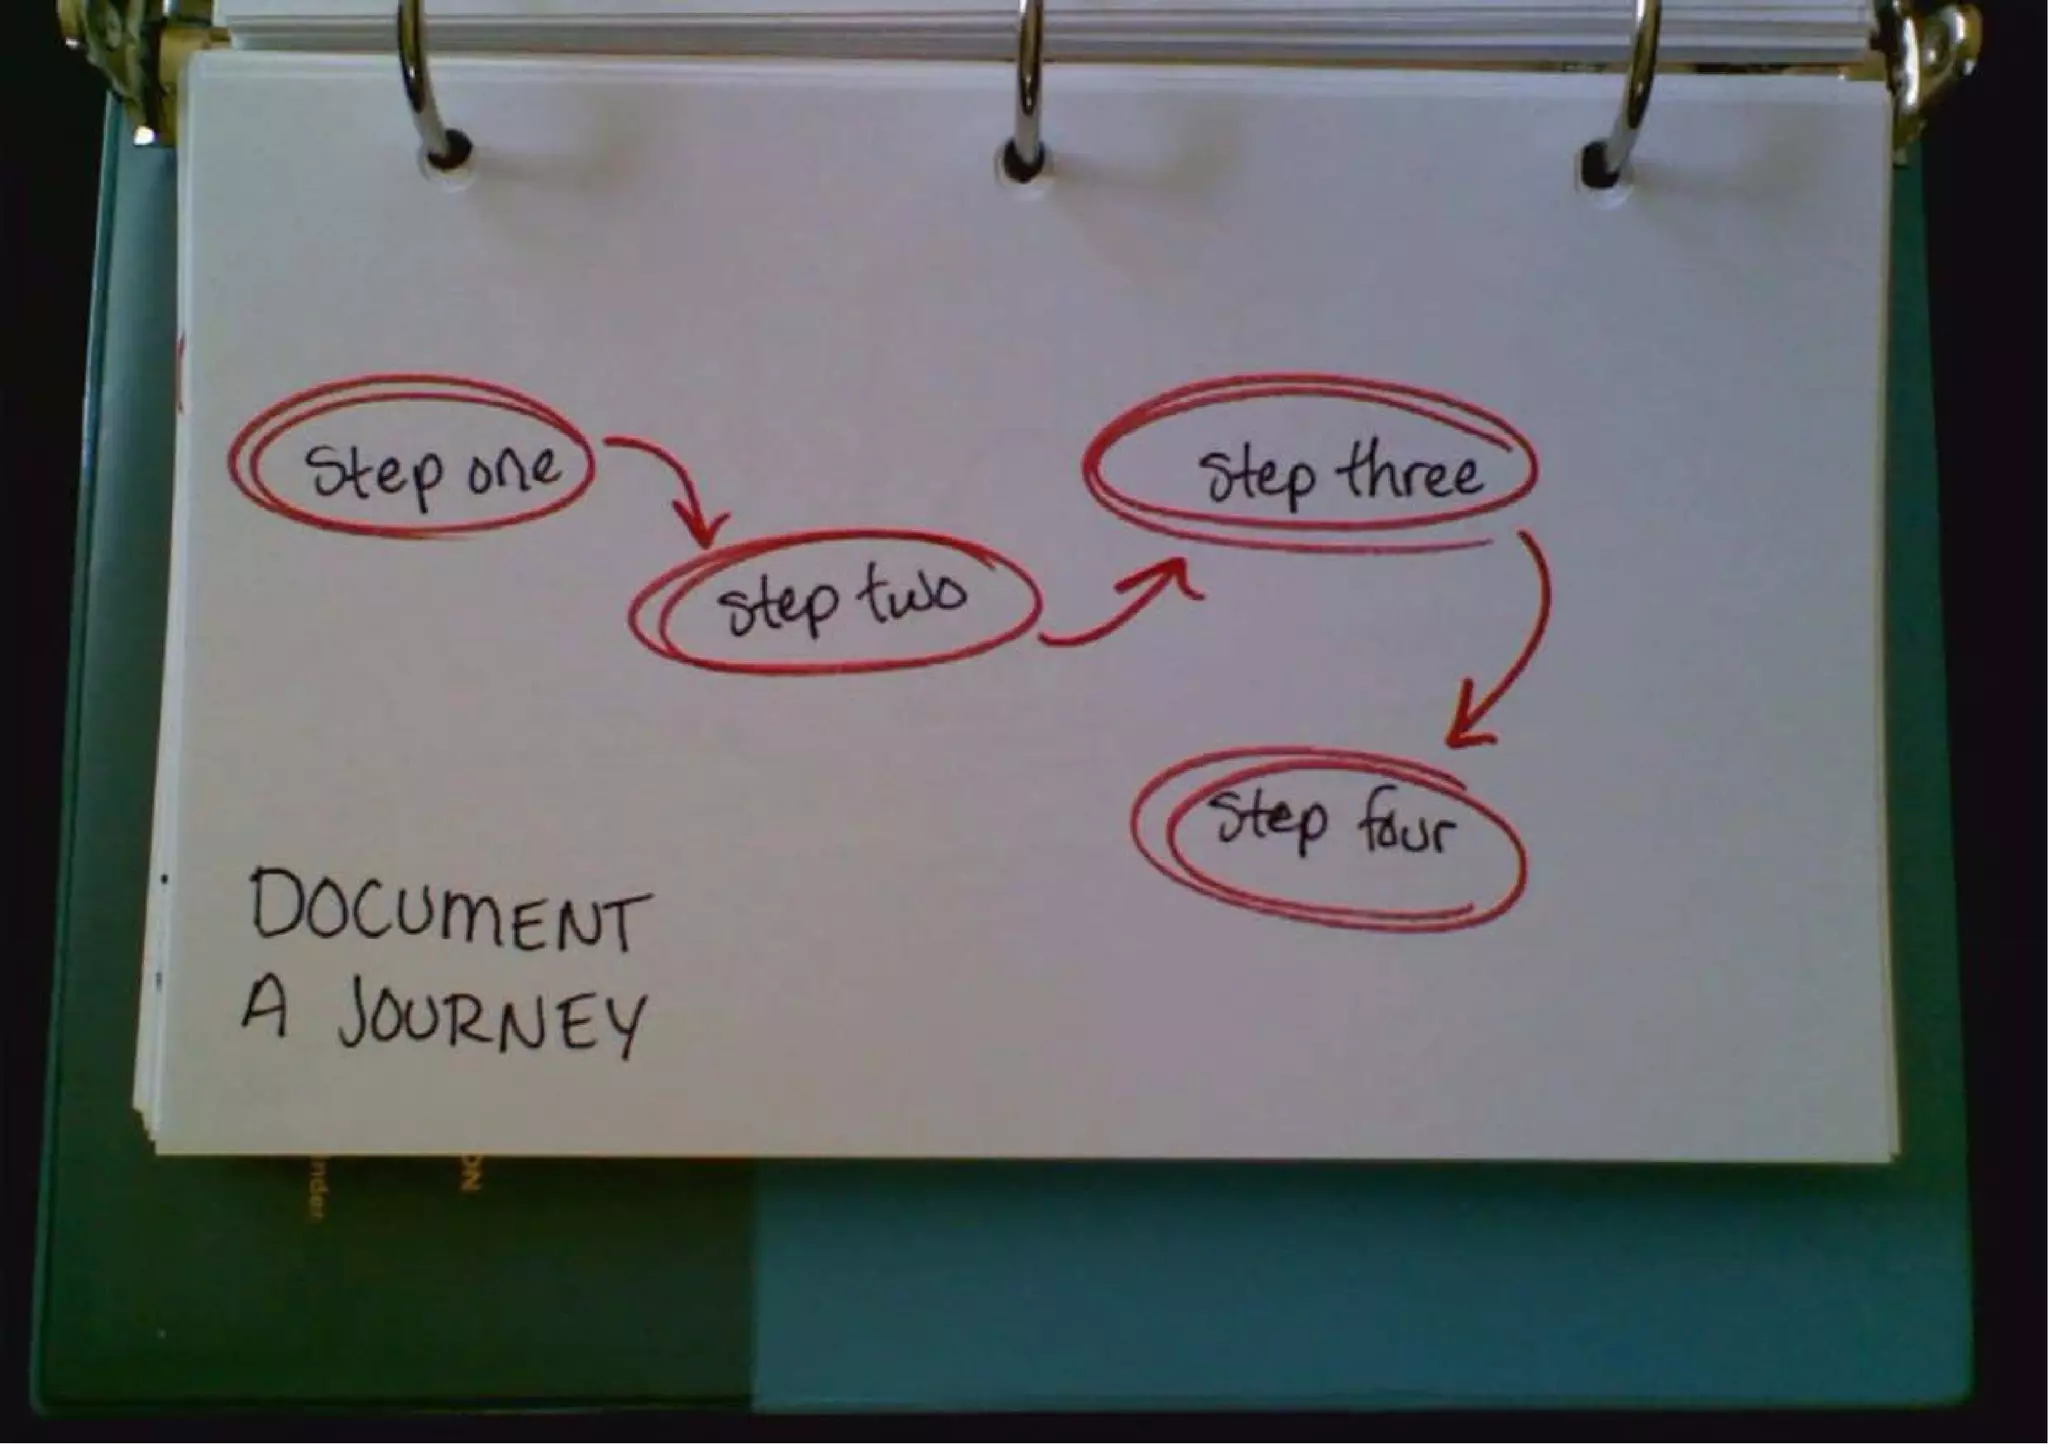 Step one
Step two
Step three
Step four
DOCUMENT
A JOURNEY